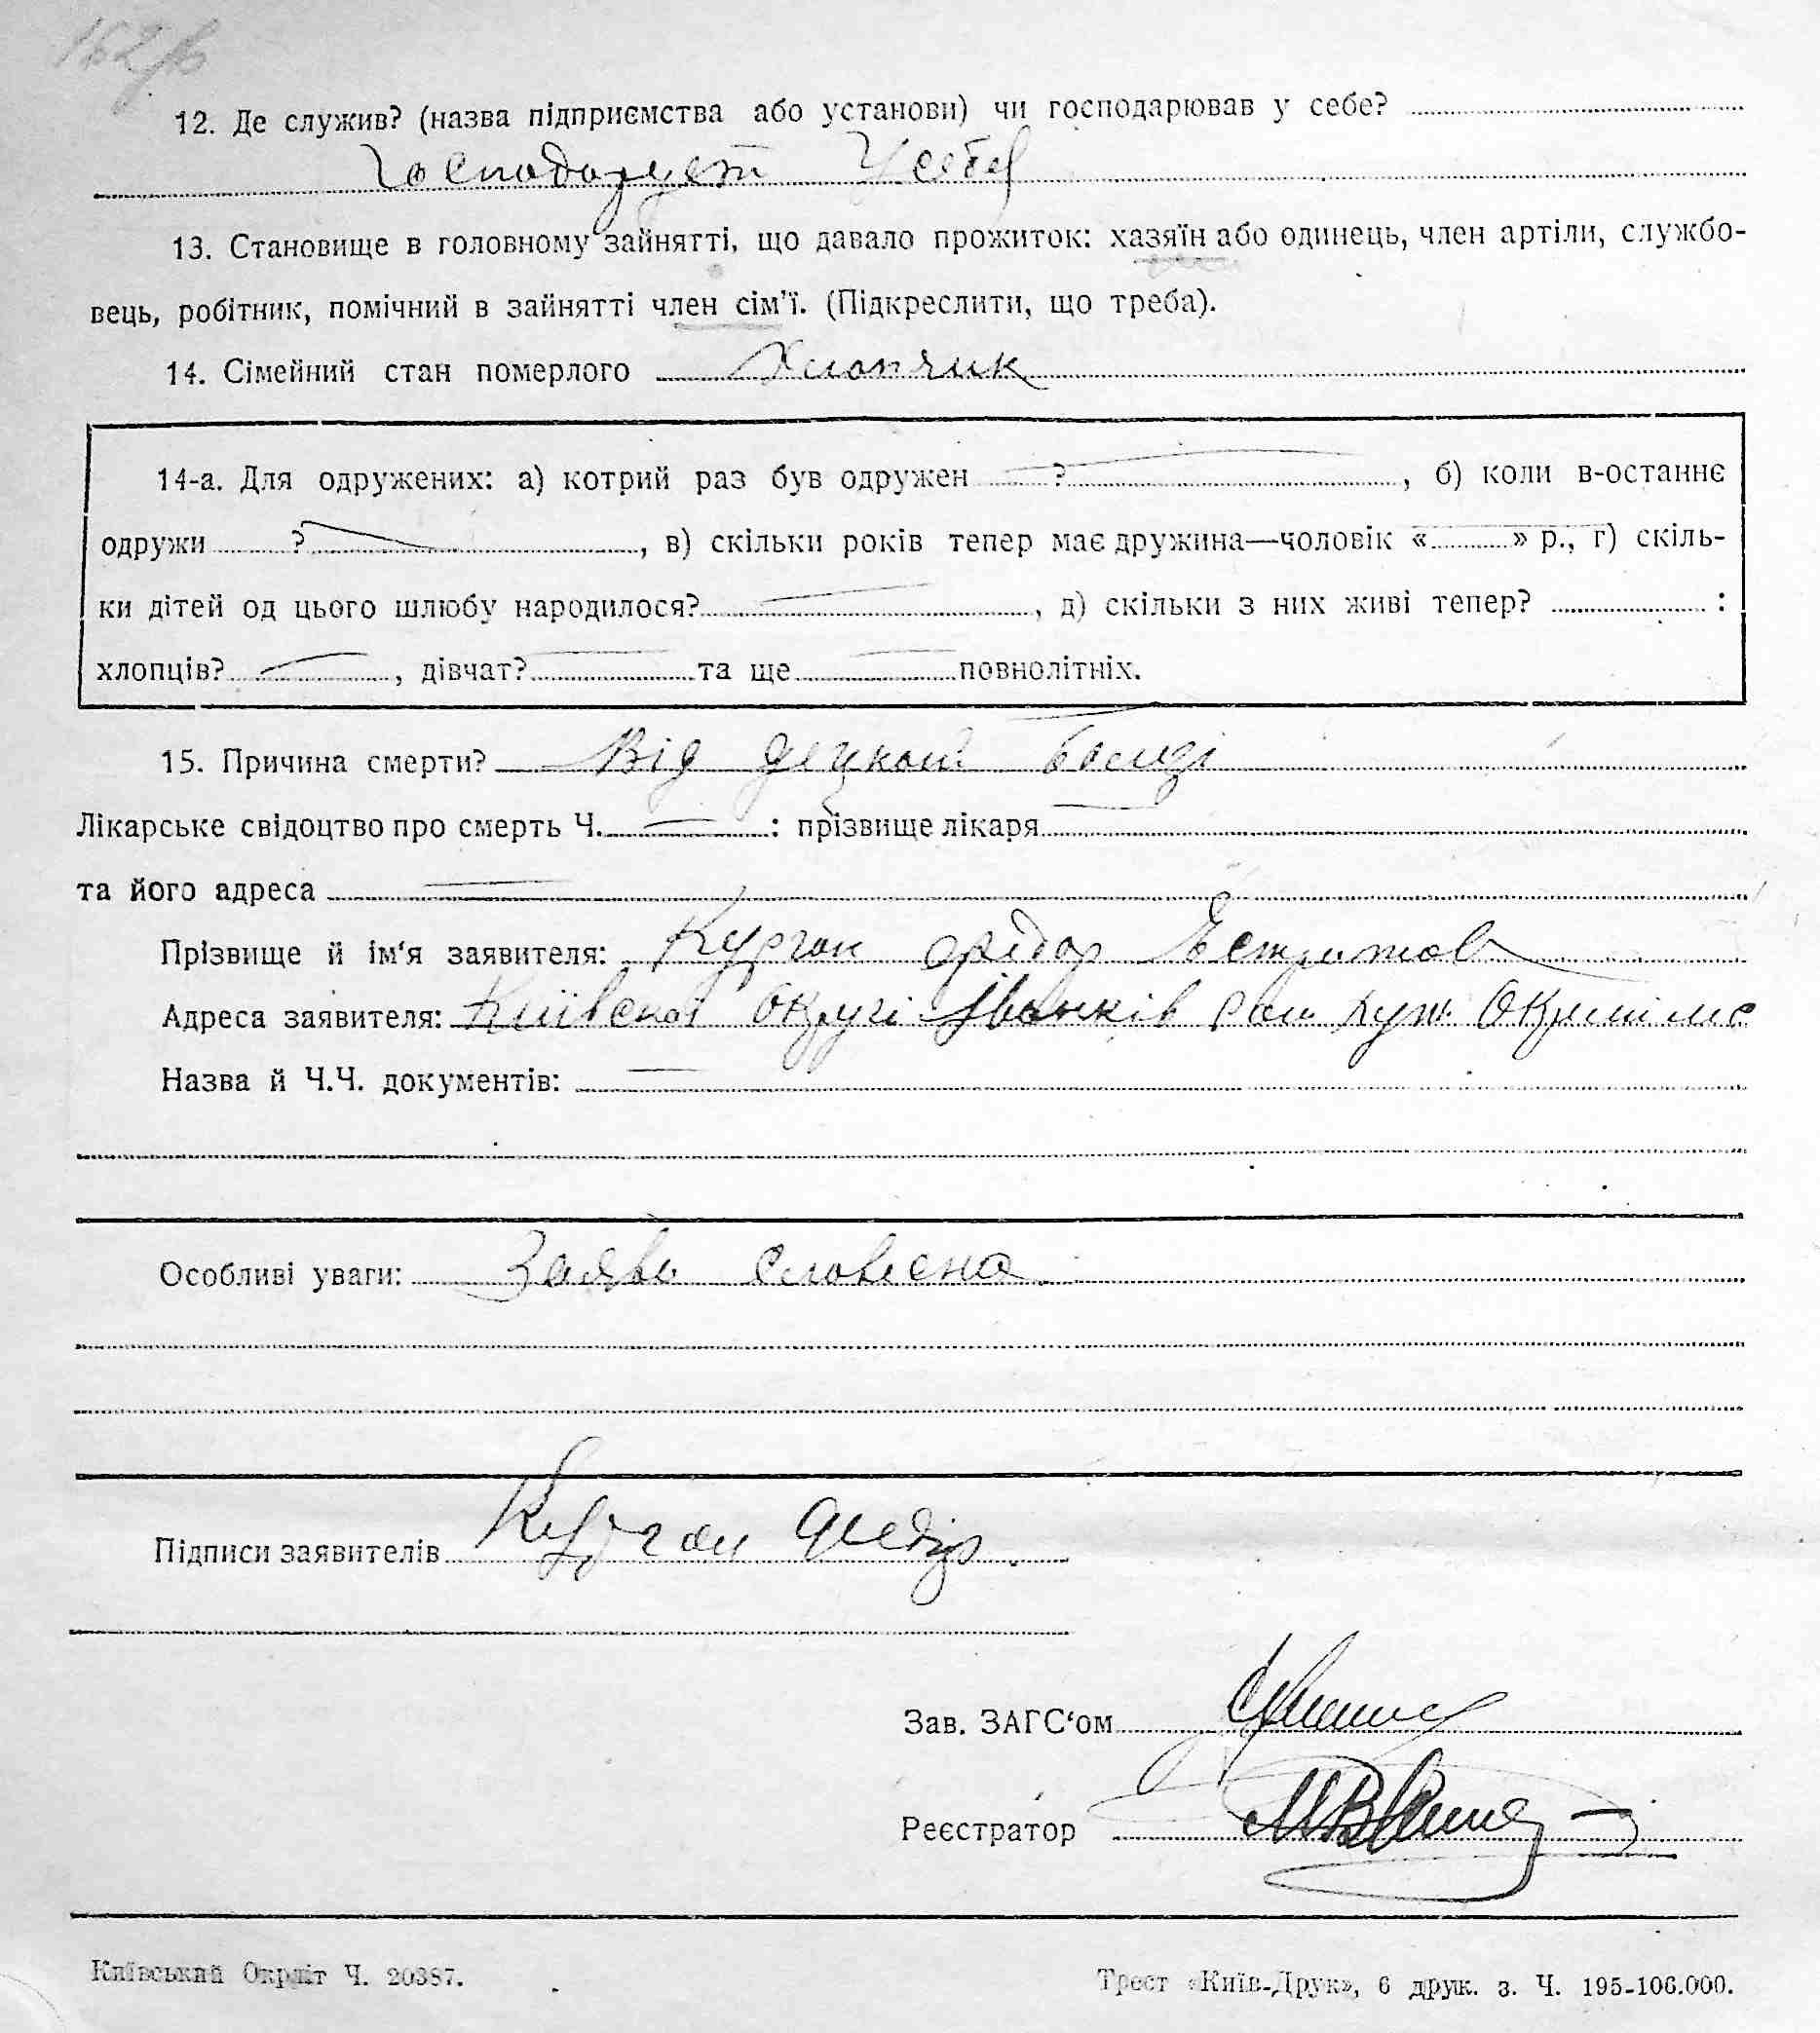 12. Де служив? (назва підприємства або установи) чи господарював у себе?
Господарует Усебе
13. Становище в головному зайнятті, що давало прожиток: хазяїн або одинець, член артіли, службо-
вець, робітник, помічний в зайнятті член сім'ї. (Підкреслити, що треба).
14. Сімейний стан померлого Хлопчик
14-а. Для одружених: а) котрий раз був одружен ?, б) коли в-останнє
одружи ?, в) скільки років тепер має дружина—чоловік « » р., г) скіль-
ки дітей од цього шлюбу народилося?, д) скільки з них живі тепер? :
хлопців?, дівчат? та ще повнолітніх.
15. Причина смерти? Від децкой
Лікарське свідоцтво про смерть Ч. : прізвище лікаря
та його адреса
Прізвище й ім'я заявителя: Курган Федор
Адреса заявителя: Київской Округі
Назва й Ч.Ч. документів:
Особливі уваги: Заява словесна
Підписи заявителів Курган Федір
Зав. ЗАГС'ом
Реєстратор
Київський Окрліт Ч. 20387.
Трест «Київ-Друк», 6 друк. з. Ч. 195-106.000.